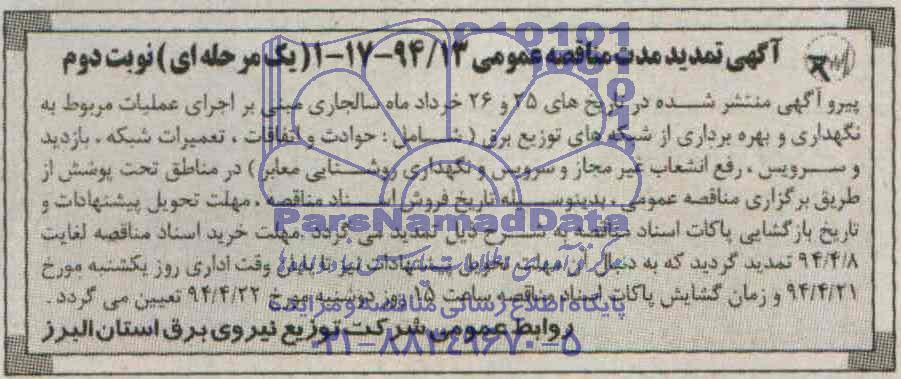 آگهی تمدید مدت مناقصه عمومی ۹۴/۱۳-۱۷-۱ (یک مرحله ای) نوبت دوم
پیرو آگهی منتشر شده در تاریخ های ۲۵ و ۲۶ خرداد ماه سالجاری مبنی بر اجرای عملیات مربوط به
نگهداری و بهره برداری از شبکه های توزیع برق (شامل : حوادث و اتفاقات ، تعمیرات شبکه ، بازدید
و سرویس ، رفع انشعاب غیر مجاز و سرویس و نگهداری روشنایی معابر) در مناطق تحت پوشش از
طریق برگزاری مناقصه عمومی ، بدینوسیله تاریخ فروش اسناد مناقصه ، مهلت تحویل پیشنهادات و
تاریخ بازگشایی پاکات اسناد مناقصه به شرح ذیل تمدید می گردد . مهلت خرید اسناد مناقصه لغایت
۹۴/۴/۸ تمدید گردید که به دنبال آن مهلت تحویل پیشنهادات نیز تا پایان وقت اداری روز یکشنبه مورخ
۹۴/۴/۲۱ و زمان گشایش پاکات اسناد مناقصه ساعت ۱۵ روز دوشنبه مورخ ۹۴/۴/۲۲ تعیین می گردد .
روابط عمومی شرکت توزیع نیروی برق استان البرز
ParsNamadData
پایگاه اطلاع رسانی مناقصه و مزایده
۰۲۱-۸۸۳۴۹۶۷۰-۵